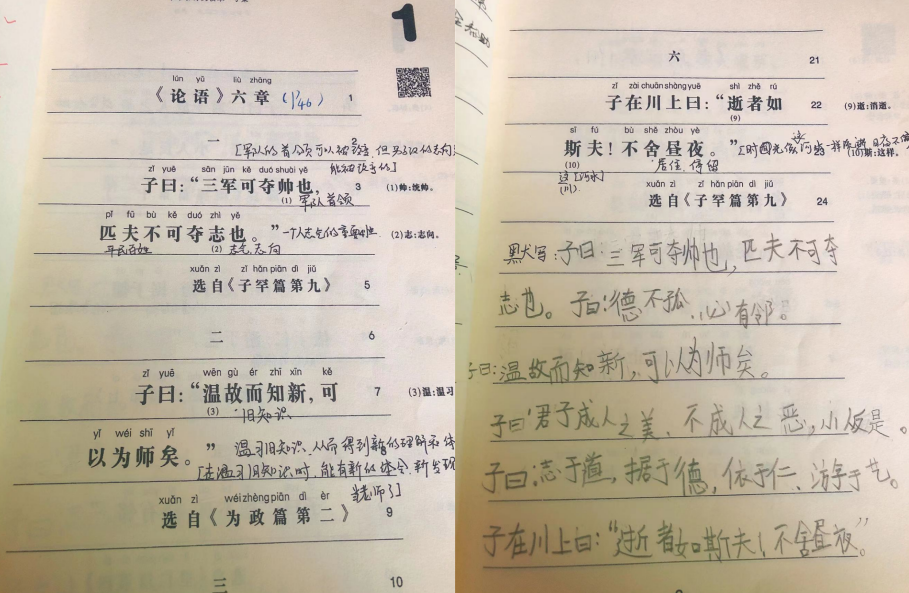 1
lún yǔ liù zhāng
《论语》六章 (1/46) 1
一
zǐ yuē sān jūn kě duó shuài yě
子曰：“三军可夺帅也， 3 (1)帅：统帅。
(1) 军队首领
pǐ fū bù kě duó zhì yě
匹夫不可夺志也。” (2)志：志向。
平民百姓 (2) 志气，志向
xuǎn zì zǐ hǎn piān dì jiǔ
选自《子罕篇第九》 5
二 6
zǐ yuē wēn gù ér zhī xīn kě
子曰：“温故而知新，可 7 (3)温：温习
(3) 旧知识
yǐ wéi shī yǐ
以为师矣。” 温习旧知识，从而得到新的理解和体
[在温习旧知识时，能有新的体会，新发现
老师了]
xuǎn zì wéi zhèng piān dì èr
选自《为政篇第二》 9
三 10
六 21
zǐ zài chuān shàng yuē shì zhě rú
子在川上曰：“逝者如 22 (9)逝：消逝。
(9)
sī fú bù shě zhòu yè
斯夫！不舍昼夜。” 23 (10)斯：这样。
(10) 居住，停留
xuǎn zì zǐ hǎn piān dì jiǔ
选自《子罕篇第九》 24
默写：子曰：三军可夺帅也，匹夫不可夺
志也。子曰：德不孤，必有邻。
子曰：温故而知新，可以为师矣。
子曰：君子成人之美，不成人之恶，小反是。
子曰：志于道，据于德，依于仁、游于艺。
子在川上曰：“逝者如斯夫！不舍昼夜”。